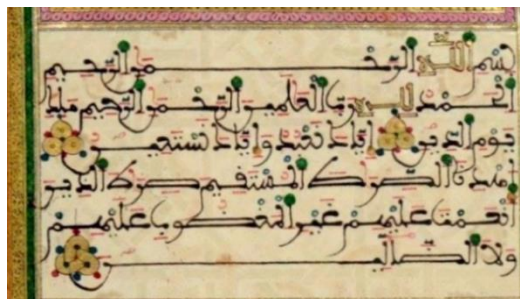 بسم الله الرحمن الرحيم
الحمد لله رب العلمين الرحمن الرحيم ملك
يوم الدين اياك نعبد واياك نستعين
اهدنا الصرط المستقيم صرط الذين
انعمت عليهم غير المغضوب عليهم
ولا الضالين